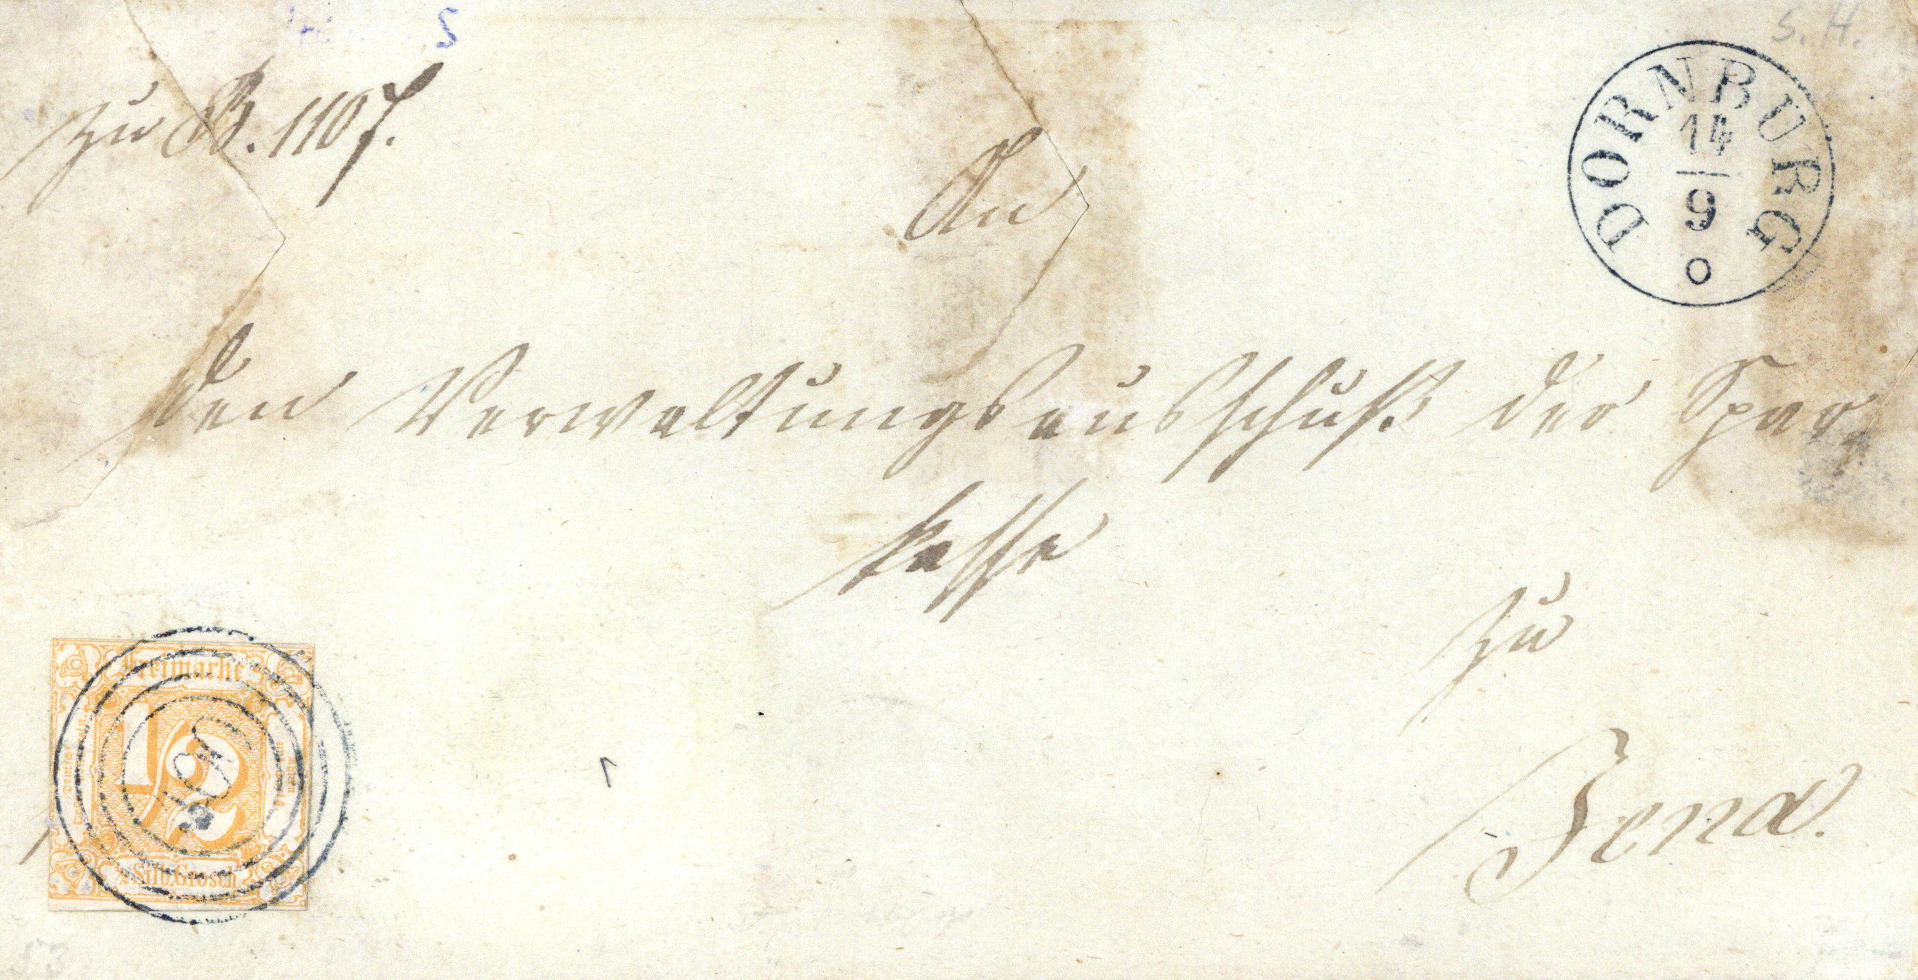 S. H.
zu B. 1107.
DORNBURG
14
9
An
den Verwaltungsausschuß der Spar-
kasse
zu
Jena.
Freimarke
1/2
Silb. Grosch